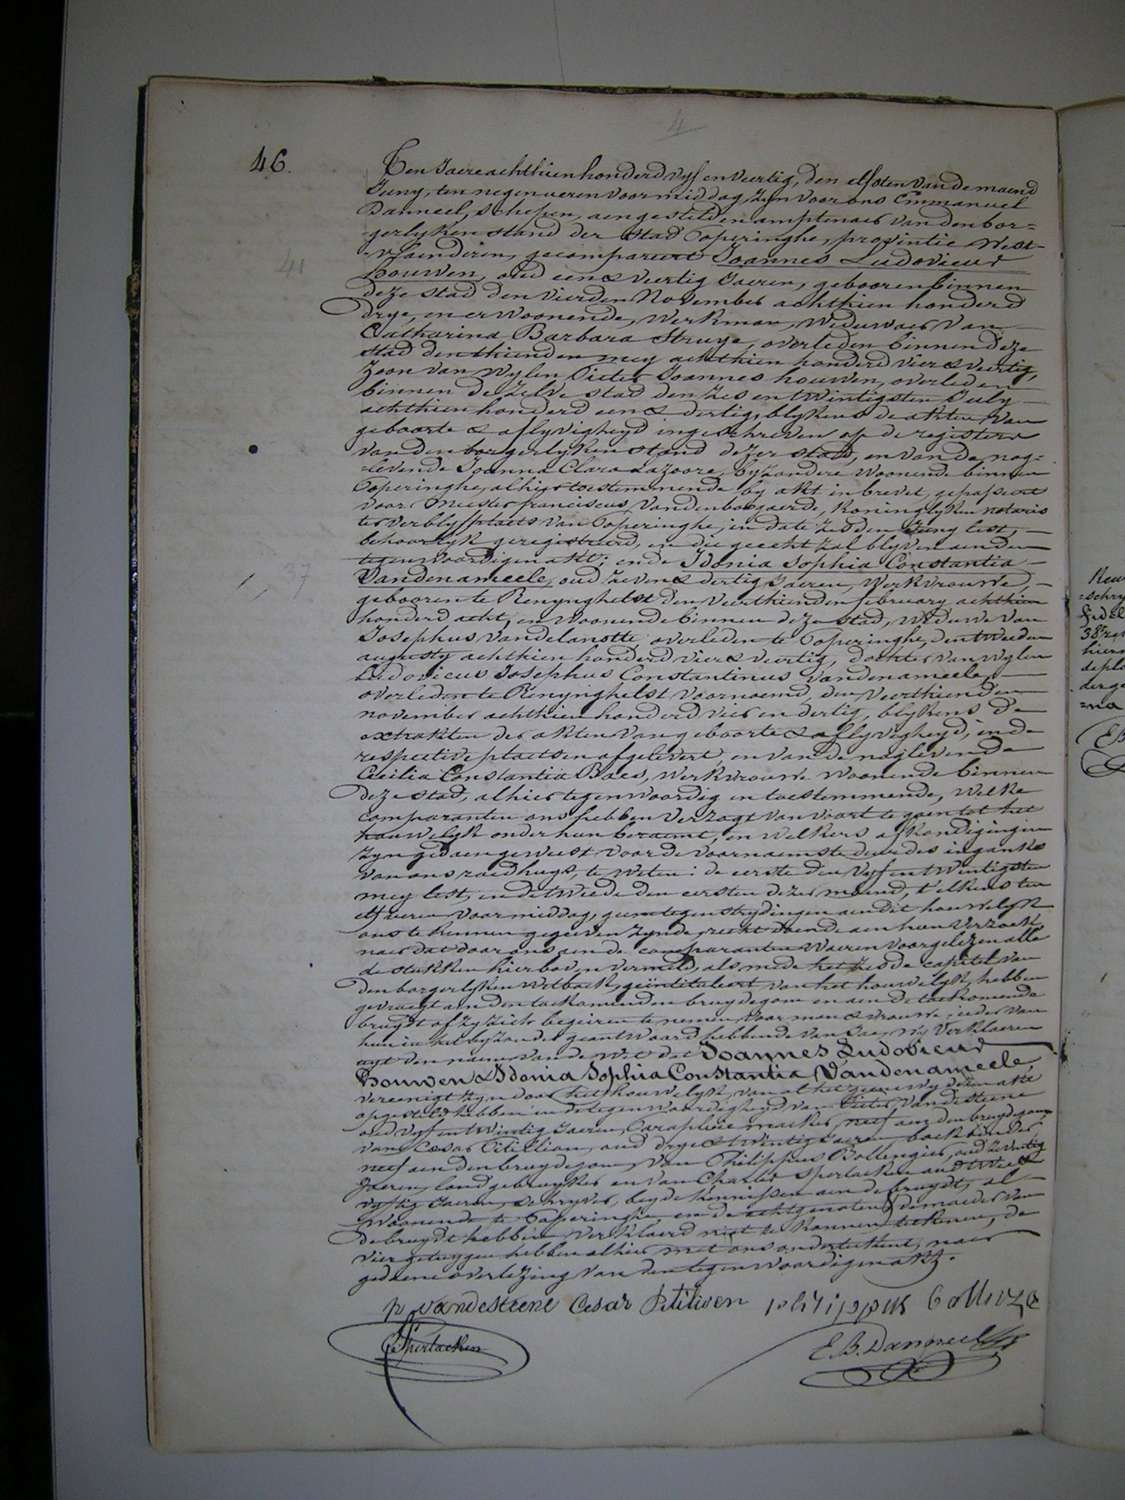 4
46.
Ten Jaere achthien honderd vyf en veertig, den elfsten van de maend
Juny, ten negen ueren voormiddag, zyn voor ons Emmanuel
Danneel, schepen, aengestelden amptenaer van den bor=
=gerlyken stand der stad Poperinghe, provintie West=
=vlaenderen, gecompareert Joannes Ludovicus
Houwen, oud een & veertig Jaeren, gebooren binnen
deze stad den vierden November achthien honderd
drye, en er woonende, werkman, weduwaer van
Catharina Barbara Struye, overleden binnen deze
stad den thienden mey achthien honderd vier & veertig,
zoon van wylen Pieter Joannes houwen, overleden
binnen de zelve stad den zes en twintigsten July
achthien honderd een & dertig, blykens de akten van
geboorte & aflyvigheyd ingeschreven op de registers
van den borgerlyken stand dezer stad, en van de nog=
=levende Joanna Clara Lazoore, byzondere woonende binnen
Poperinghe, alhier toestemmende by akt in brevet, gepasseert
voor Meester franciscus Vandenbogaerde, koninglyken notaris
ter verblyfplaets van Poperinghe, in date zesden Juny lest,
behoorlyk geregistreerd, en die gehecht zal blyven aen den
tegenwoordigen akt; ende Idonia Sophia Constantia
Vandenameele, oud zeven & dertig Jaeren, werkvrouwe,
gebooren te Renynghelst den veerthienden february achthien
honderd acht, en woonende binnen deze stad, weduwe van
Josephus Vandelanotte, overleden te Poperinghe, den tweeden
augusty achthien honderd vier & veertig, dochter van wylen
Ludovicus Josephus Constantinus Vandenameele,
overleden te Renynghelst voornoemd, den veerthienden
november achthien honderd vier en dertig, blykens de
extrakten der akten van geboorte & aflyvigheyd, in de
respective plaetsen afgelevert, en van de nog levende
Cecilia Constantia Baes, werkvrouwe woonende binnen
deze stad, alhier tegenwoordig en toestemmende, welke
comparanten ons hebben verzogt van voort te gaen tot het
houwelyk onder hun beraemt, en welkers afkondigingen
zyn gedaen geweest voor de voornaemste deur des inganks
van ons raedhuys, te weten: de eerste den vyf en twintigsten
mey lest, en de twede den eersten dezer maend, t'elkens ten
elf ueren voormiddag, geene tegenstrydingen aen dit houwelyk
ons te kennen gegeven zynde, recht doende aen hun verzoek,
naer dat door ons aen de comparanten waeren voorgelezen alle
de stukken hier boven vermeld, als mede het zesde capitel van
den borgerlyken wetboek, geïntituleert van het houwelyk, hebben
gevraegt aen den toekomenden bruydegom en aen de toekomende
bruyd of zy zich begeeren te nemen voor man & vrouwe; ieder van
hun in het byzonder geantwoord hebbende van Jae, Wy verklaeren
uyt den naem van de wet dat Joannes Ludovicus
Houwen & Idonia Sophia Constantia Vandenameele,
vereenigt zyn door het houwelyk, van al het gene wy dezen akt
opgesteld hebben in de tegenwoordigheyd van Pieter Vandesteene
oud vyf en twintig Jaeren, Paraplui maeker, neef aen den bruydegom,
van Cesar Petillion, oud drye & twintig Jaeren boekbinder,
neef aen den bruydegom, van Philippus Bollengier, oud zeventig
Jaeren, landgebruyker en van Charles Sperlaeken oud twee &
vyftig Jaeren, schryver, beyde kennissen aen de bruyd, al
woonende te Poperinghe, en de echtgenoten & de moeder van
de bruyd hebben verklaerd niet te konnen teekenen, de
vier getuygen hebben alhier met ons onderteekent, naer
gedaene overlezing van den tegenwoordigen akt.
p. vandesteene Cesar Petillion
C. Sperlaeken
E. B. Danneel